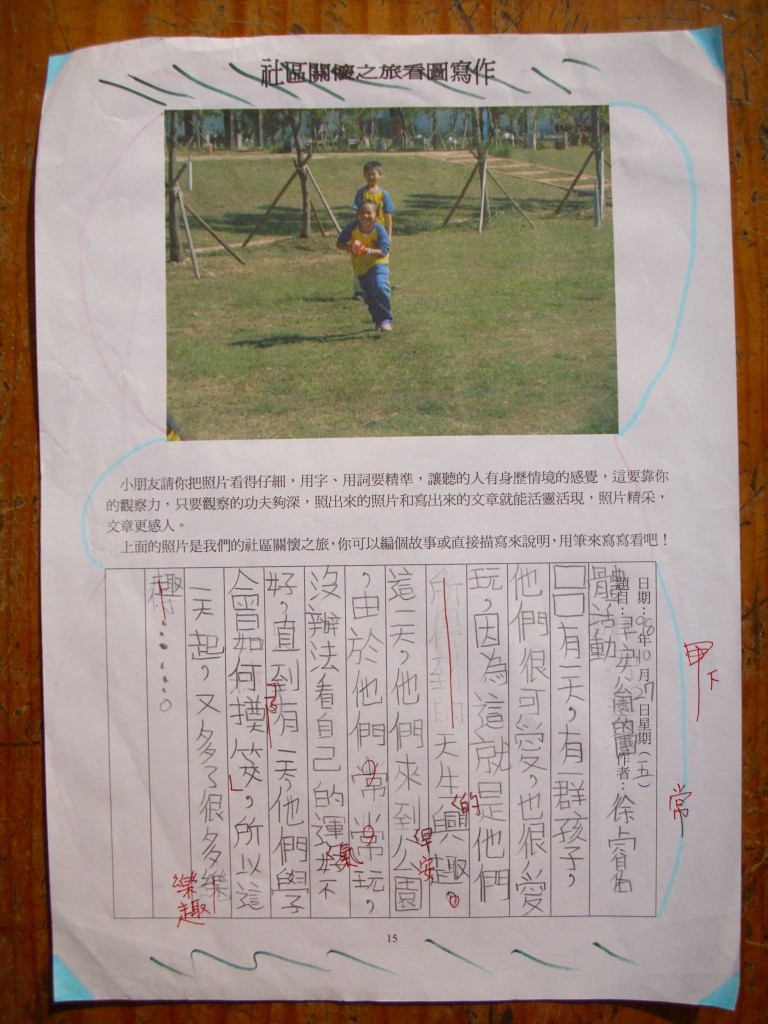 社區關懷之旅看圖寫作
小朋友請你把照片看得仔細，用字、用詞要精準，讓聽的人有身歷情境的感覺，這要靠你
的觀察力，只要觀察的功夫夠深，照出來的照片和寫出來的文章就能活靈活現，照片精采，
文章更感人。
上面的照片是我們的社區關懷之旅，你可以編個故事或直接描寫來說明，用筆來寫寫看吧！
日期：98年10月27日星期（五）
題目：早安公園的團作者：徐睿
體活動
有一天，有一群孩子，
他們很可愛，也很愛
玩，因為這就是他們
天生興趣。
的
這一天，他們來到公園
早安
，由於他們常常玩，
沒辦法看自己的運不
氣
好，直到有一天，他們學
了
會如何摸笑，所以這
一天起，又多了很多樂
樂趣
趣……。
甲下
常
15